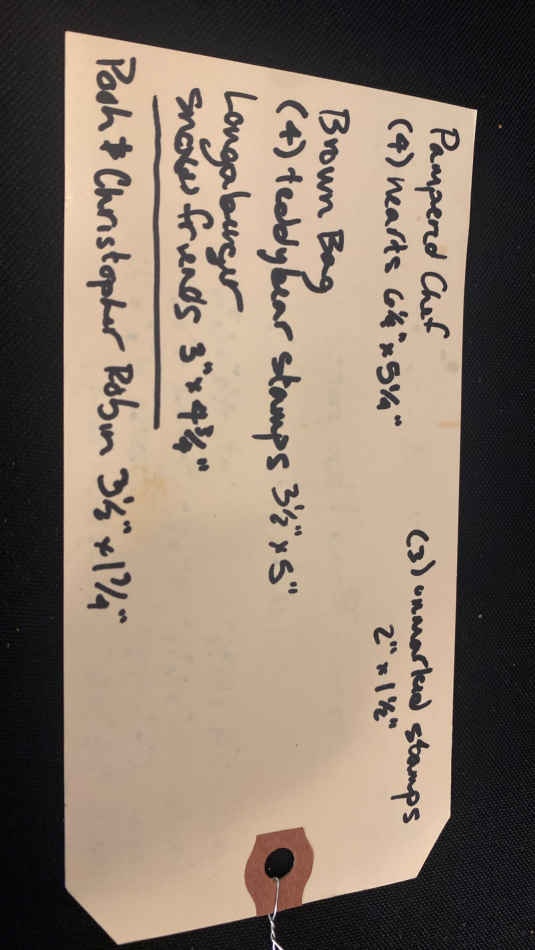 Pampered Chef
(4) hearts 6½" x 5¼"
(3) unmarked stamps
2" x 1½"
Brown Bag
(4) teddybear stamps 3½" x 5"
Longaberger
snow friends 3" x 4¾"
Pooh & Christopher Robin 3½" x 1¾"